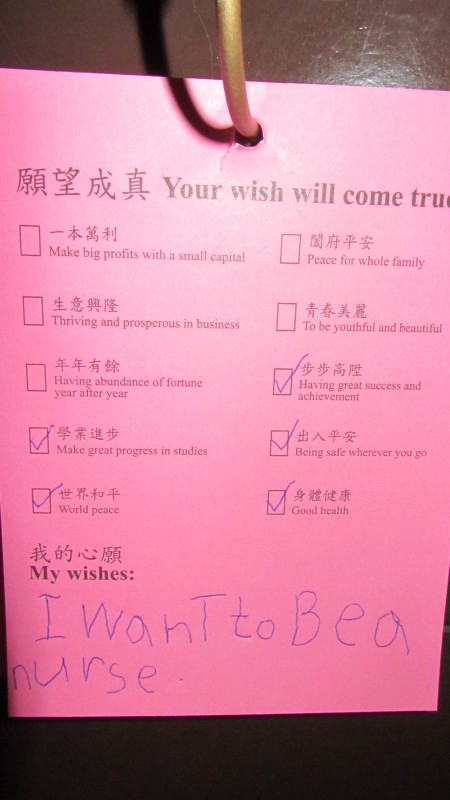 願望成真 Your wish will come true
一本萬利
Make big profits with a small capital
闔府平安
Peace for whole family
生意興隆
Thriving and prosperous in business
青春美麗
To be youthful and beautiful
年年有餘
Having abundance of fortune
year after year
步步高陞
Having great success and
achievement
學業進步
Make great progress in studies
出入平安
Being safe wherever you go
世界和平
World peace
身體健康
Good health
我的心願
My wishes:
I WanT to Be a
nurse.